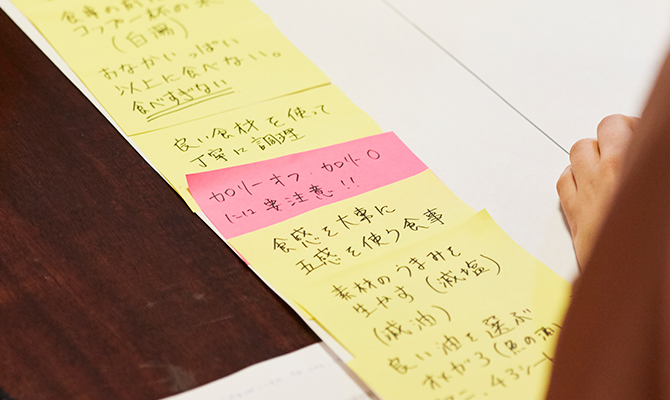 食事の前に
コップ一杯の水
(白湯)
おなかいっぱい
以上に食べない。
食べすぎない
良い食材を使って
丁寧に調理
カロリーオフ・カロリー0
には要注意!!
食感を大事に
五感を使う食事
素材のうまみを
生かす (減塩)
(減油)
良い油を選ぶ
(魚の油)